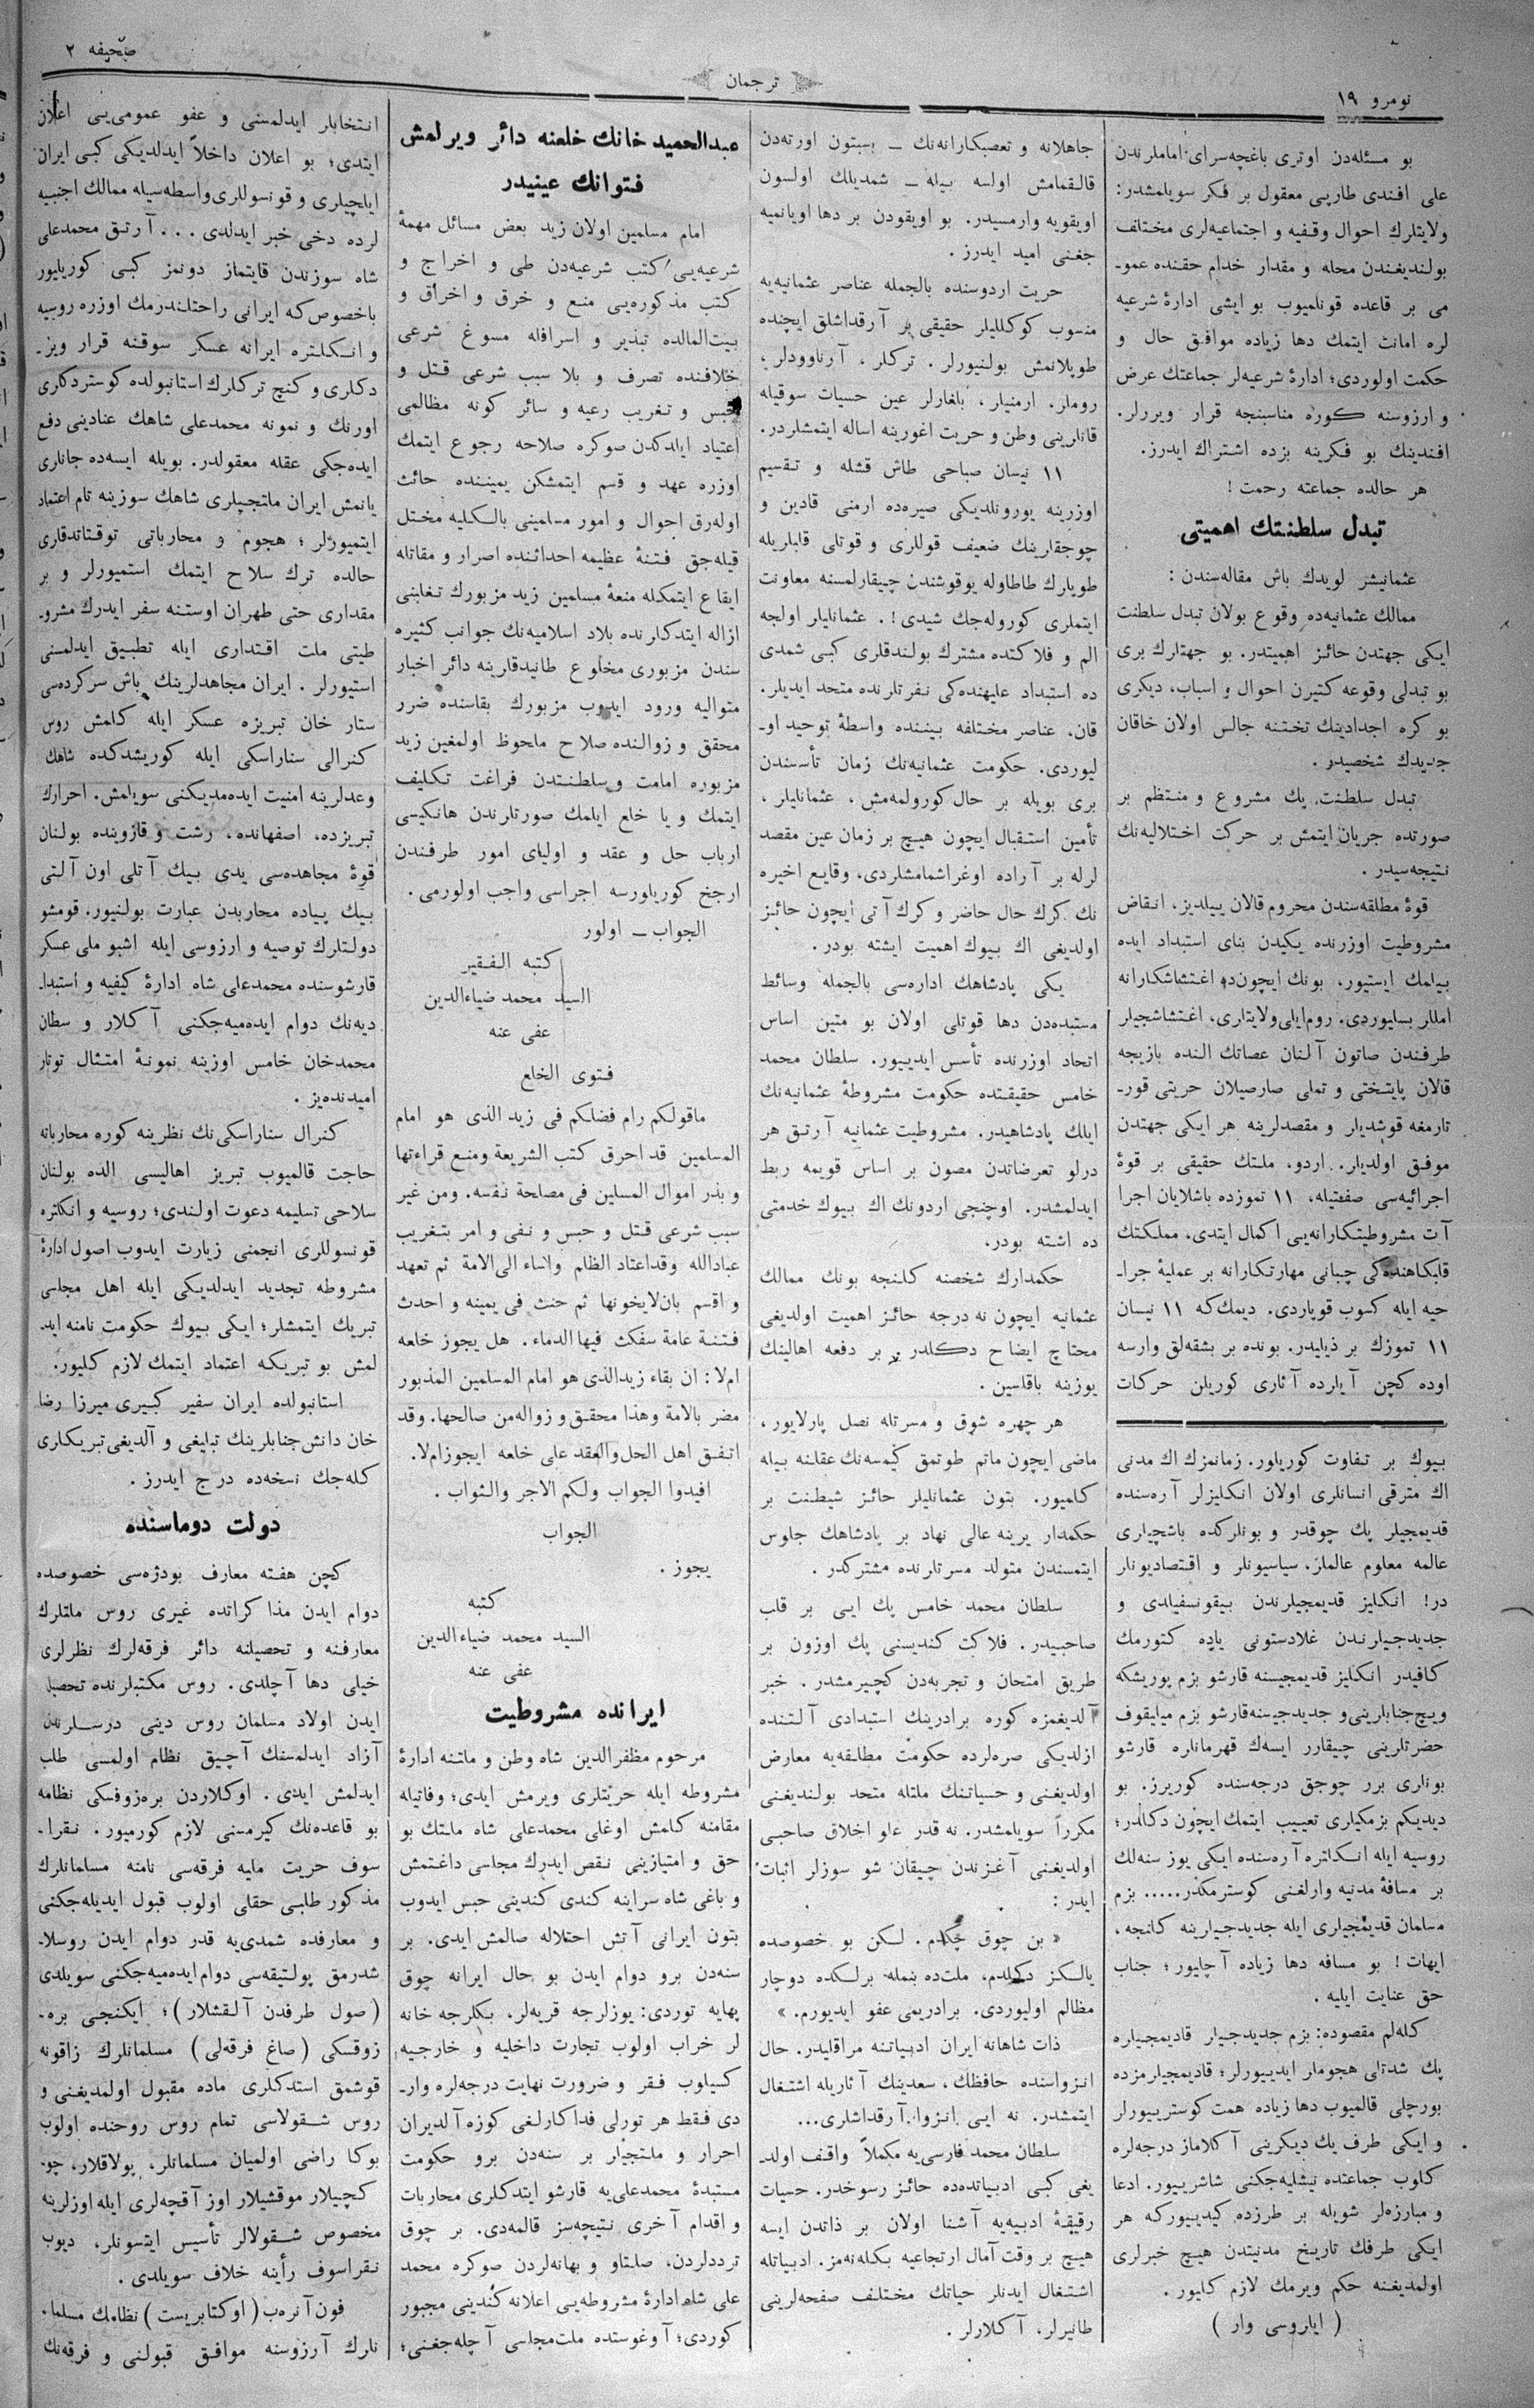 نومرو ١٩
ترجمان
صحيفه ٢
بو مسئله‌دن اوتری باغچه‌سرای اماملرندن
علی افندی طاریی معقول بر فكر سویلمشدر:
ولایتلرك احوال وقفیه و اجتماعیه‌لری مختلف
بولندیغندن محله و مقدار خدام حقنده عمو-
می بر قاعده قونلمیوب بو ایشی ادارۀ شرعیه
لره امانت ایتمك دها زیاده موافق حال و
حكمت اولوردی؛ ادارۀ شرعیه‌لر جماعتك عرض
و ارزوسنه كوره مناسبنجه قرار ویررلر.
افندینك بو فكرینه بزده اشتراك ایدرز.
هر حالده جماعته رحمت!
تبدل سلطنتك اهمیتی
عثمانیشر لویدك باش مقاله‌سندن:
ممالك عثمانیه‌ده وقوع بولان تبدل سلطنت
ایكی جهتدن حائز اهمیتدر. بو جهتلرك بری
بو تبدلی وقوعه كتیرن احوال و اسباب، دیكری
بو كره اجدادینك تختنه جالس اولان خاقان
جدیدك شخصیدر.
تبدل سلطنت، پك مشروع و منتظم بر
صورتده جریان ایتمش بر حركت اختلالیه‌نك
نتیجه‌سیدر.
قوۀ مطلقه‌سندن محروم قالان ییلدیز، انقاض
مشروطیت اوزرنده یكیدن بنای استبداد ایده
بیلمك ایستیور، بونك ایچون‌ده اغتشاشكارانه
امللر بسلیوردی. روم‌ایلی ولایتلری، اغتشاشجیلر
طرفندن صاتون آلنان عصاتك النده بازیجه
قالان پایتختی و تملی صارصیلان حریتی قور-
تارمغه قوشدیلر و مقصدلرینه هر ایكی جهتدن
موفق اولدیلر. اردو، ملتك حقیقی بر قوۀ
اجرائیه‌سی صفتیله، ١١ تموزده باشلایان اجرا
آت مشروطیتكارانه‌یی اكمال ایتدی، مملكتك
قلبكاهنده‌كی چبانی مهارتكارانه بر عملیۀ جرا-
حیه ایله كسوب قوپاردی. دیمك‌كه ١١ نیسان
١١ تموزك بر ذیلیدر. بونده بر بشقه‌لق وارسه
اوده كچن آیارده آثاری كوریلن حركات
بیوك بر تفاوت كوریلور. زمانمزك اك مدنی
اك مترقی انسانلری اولان انكلیزلر آره‌سنده
قدیمجیلر پك چوقدر و بونلركده باشچیلری
عالمه معلوم عالملر، سیاسیونلر و اقتصادیونلر
در! انكلیز قدیمجیلرندن بیقونسفیلدی و
جدیدجیلرندن غلادستونی یاده كتورمك
كافیدر انكلیز قدیمجیسنه قارشو بزم پوریشكه
ویچ جنابلرینی و جدیدجیسنه قارشو بزم میلیقوف
حضرتلرینی چیقارر ایسه‌ك قهرمانلره قارشو
بونلری برر چوجق درجه‌سنده كوریرز. بو
دیدیكم بزمكیلری تعییب ایتمك ایچون دكلدر؛
روسیه ایله انكلتره آره‌سنده ایكی یوز سنه‌لك
بر مسافۀ مدنیه وارلغنی كوسترمكدر..... بزم
مسلمان قدیمجیلری ایله جدیدجیلرینه كلنجه،
ایهات! بو مسافه دها زیاده آچلیور؛ جناب
حق عنایت ایلیه.
كله‌لم مقصوده: بزم جدیدجیلر قادیمجیلره
پك شدتلی هجوملر ایدییورلر؛ قادیمجیلرمزده
بورچلی قالمیوب دها زیاده همت كوستریورلر
و ایكی طرف یك دیكرینی آكلاماز درجه‌لره
كلوب جماعتده نیشلیه‌جكنی شاشرییور. ادعا
و مبارزه‌لر شویله بر طرزده كیدییوركه هر
ایكی طرفك تاریخ مدنیتدن هیچ خبرلری
اولمدیغنه حكم ویرمك لازم كلیور.
(ایلروسی وار)
جاهلانه و تعصبكارانه‌نك ــ بسبتون اورته‌دن
قالقمامش اولسه بیله ــ شمدیلك اولسون
اویقویه وارمسیدر. بو اویقودن بر دها اویانمیه
جغنی امید ایدرز.
حریت اردوسنده بالجمله عناصر عثمانیه‌یه
منسوب كوكللیلر حقیقی بر آرقداشلق ایچنده
طوپلانمش بولنیورلر. تركلر، آرناوودلر،
روملر، ارمنیلر، بلغارلر عین حسیات سوقیله
قانلرینی وطن و حریت اغورینه اساله ایتمشلردر.
١١ نیسان صباحی طاش قشله و تقسیم
اوزرینه یورونلدیكی صیره‌ده ارمنی قادین و
چوجقلرینك ضعیف قوللری و قوتلی قلبلریله
طوپلرك طاطاوله یوقوشندن چیقارلمسنه معاونت
ایتملری كوروله‌جك شیدی!. عثمانلیلر اولجه
الم و فلاكتده مشترك بولندقلری كبی شمدی
ده استبداد علیهنده‌كی نفرتلرنده متحد ایدیلر.
قان، عناصر مختلفه بیننده واسطۀ توحید او-
لیوردی. حكومت عثمانیه‌نك زمان تأسسندن
بری بویله بر حال كورولمه‌مش، عثمانلیلر،
تأمین استقبال ایچون هیچ بر زمان عین مقصد
لرله بر آراده اوغراشمامشلردی، وقایع اخیره
نك كرك حال حاضر و كرك آتی ایچون حائز
اولدیغی اك بیوك اهمیت ایشته بودر.
یكی پادشاهك اداره‌سی بالجمله وسائط
مستبده‌دن دها قوتلی اولان بو متین اساس
اتحاد اوزرنده تأسس ایدییور. سلطان محمد
خامس حقیقتده حكومت مشروطۀ عثمانیه‌نك
ایلك پادشاهیدر. مشروطیت عثمانیه آرتق هر
درلو تعرضاتدن مصون بر اساس قویمه ربط
ایدلمشدر. اوچنجی اردونك اك بیوك خدمتی
ده اشته بودر.
حكمدارك شخصنه كلنجه بونك ممالك
عثمانیه ایچون نه درجه حائز اهمیت اولدیغی
محتاج ایضاح دكلدر. بر دفعه اهالینك
یوزینه باقلسین.
هر چهره شوق و مسرتله نصل پارلایور،
ماضی ایچون ماتم طوتمق كیمسه‌نك عقلنه بیله
كلمیور. بتون عثمانلیلر حائز شیطنت بر
حكمدار یرینه عالی نهاد بر پادشاهك جلوس
ایتمسندن متولد مسرتلرنده مشتركدر.
سلطان محمد خامس پك ایی بر قلب
صاحبیدر. فلاكت كندیسنی پك اوزون بر
طریق امتحان و تجربه‌دن كچیرمشدر. خبر
آلدیغمزه كوره برادرینك استبدادی آلتنده
ازلدیكی صره‌لرده حكومت مطلقه‌یه معارض
اولدیغنی و حسیاتنك ملتله متحد بولندیغنی
مكرراً سویلمشدر. نه قدر علو اخلاق صاحبی
اولدیغنی آغزندن چیقان شو سوزلر اثبات
ایدر:
« بن چوق چكدم. لكن بو خصوصده
یالكز دكلدم، ملت‌ده بنمله برلكده دوچار
مظالم اولیوردی. برادریمی عفو ایدیورم. »
ذات شاهانه ایران ادبیاتنه مراقلیدر. حال
انزواسنده حافظك، سعدینك آثاریله اشتغال
ایتمشدر. نه ایی انزوا آرقداشلری...
سلطان محمد فارسی‌یه مكملاً واقف اولد-
یغی كبی ادبیاتده‌ده حائز رسوخدر. حسیات
رقیقۀ ادبیه‌یه آشنا اولان بر ذاتدن ایسه
هیچ بر وقت آمال ارتجاعیه بكله‌نه‌مز. ادبیاتله
اشتغال ایدنلر حیاتك مختلف صفحه‌لرینی
طانیرلر، آكلارلر.
عبدالحمید خانك خلعنه دائر ویرلمش
فتوانك عینیدر
امام مسلمین اولان زید بعض مسائل مهمۀ
شرعیه‌یی كتب شرعیه‌دن طی و اخراج و
كتب مذكوره‌یی منع و خرق و احراق و
بیت‌المالده تبذیر و اسرافله مسوغ شرعی
خلافنده تصرف و بلا سبب شرعی قتل و
حبس و تغریب رعیه و سائر كونه مظالمی
اعتیاد ایلدكدن صوكره صلاحه رجوع ایتمك
اوزره عهد و قسم ایتمشكن یمیننده حانث
اوله‌رق احوال و امور مسلمینی بالكلیه مختل
قیله‌جق فتنۀ عظیمه احداثنده اصرار و مقاتله
ایقاع ایتمكله منعۀ مسلمین زید مزبورك تغلبنی
ازاله ایتدكلرنده بلاد اسلامیه‌نك جوانب كثیره
سندن مزبوری مخلوع طانیدقلرینه دائر اخبار
متوالیه ورود ایدوب مزبورك بقاسنده ضرر
محقق و زوالنده صلاح ملحوظ اولمغین زید
مزبوره امامت و سلطنتدن فراغت تكلیف
ایتمك و یا خلع ایلمك صورتلرندن هانكیسی
ارباب حل و عقد و اولیای امور طرفندن
ارجح كوریلورسه اجراسی واجب اولورمی.
الجواب ــ اولور
كتبه الفقیر
السید محمد ضیاءالدین
عفی عنه
فتوی الخلع
ماقولكم رام فضلكم فی زید الذی هو امام
المسلمین قد احرق كتب الشریعة ومنع قراءتها
و بذر اموال المسلین فی مصلحة نفسه. ومن غیر
سبب شرعی قتل و حبس و نفی و امر بتغریب
عبادالله وقداعتاد الظلم واساء الی‌الامة ثم تعهد
و اقسم بان‌لایخونها ثم حنث فی یمینه و احدث
فتنة عامة سفكت فیهاالدماء. هل یجوز خلعه
ام‌لا: ان بقاء زیدالذی هو امام المسلمین المذبور
مضر بالامة وهذا محقق و زواله‌من صالحها. وقد
اتفق اهل الحل‌والعقد علی خلعه ایجوزام‌لا.
افیدوا الجواب ولكم الاجر والثواب.
الجواب
یجوز.
كتبه
السید محمد ضیاءالدین
عفی عنه
ایرانده مشروطیت
مرحوم مظفرالدین شاه وطن و ملتنه ادارۀ
مشروطه ایله حریتلری ویرمش ایدی؛ وفاتیله
مقامنه كلمش اوغلی محمدعلی شاه ملتك بو
حق و امتیازینی نقص ایدرك مجلسی داغتمش
و باغی شاه سراینه كندی كندینی حبس ایدوب
بتون ایرانی آتش احتلاله صالمش ایدی. بر
سنه‌دن برو دوام ایدن بو حال ایرانه چوق
پهایه توردی: یوزلرجه قریه‌لر، بكلرجه خانه
لر خراب اولوب تجارت داخلیه و خارجیه
كسیلوب فقر و ضرورت نهایت درجه‌لره وار-
دی فقط هر تورلی فداكارلغی كوزه آلدیران
احرار و ملتجیلر بر سنه‌دن برو حكومت
مستبدۀ محمدعلی‌یه قارشو ایتدكلری محاربات
و اقدام آخری نتیجه‌سز قالمه‌دی. بر چوق
ترددلردن، صلتاو و بهانه‌لردن صوكره محمد
علی شاه ادارۀ مشروطه‌یی اعلانه كندینی مجبور
كوردی؛ آوغوستده ملت‌مجلسی آچله‌جغنی؛
انتخابلر ایدلمسنی و عفو عمومی‌یی اعلان
ایتدی؛ بو اعلان داخلاً ایدلدیكی كبی ایران
ایلچیلری و قونسوللری واسطه‌سیله ممالك اجنبیه
لرده دخی خبر ایدلدی... آرتق محمدعلی
شاه سوزندن قایتماز دونمز كبی كوریلیور
باخصوص‌كه ایرانی راحتلندرمك اوزره روسیه
و انكلتره ایرانه عسكر سوقنه قرار ویر-
دكلری و كنچ تركلرك استانبولده كوستردكلری
اورنك و نمونه محمدعلی شاهك عنادینی دفع
ایده‌جكی عقله معقولدر. بویله ایسه‌ده جانلری
یانمش ایران ملتجیلری شاهك سوزینه تام اعتماد
ایتمیورلر؛ هجوم و محارباتی توقتاتدقلری
حالده ترك سلاح ایتمك استمیورلر و بر
مقداری حتی طهران اوستنه سفر ایدرك مشرو-
طیتی ملت اقتداری ایله تطبیق ایدلمسنی
استیورلر. ایران مجاهدلرینك باش سركرده‌سی
ستار خان تبریزه عسكر ایله كلمش روس
كنرالی سنارسكی ایله كوریشدكده شاهك
وعدلرینه امنیت ایده‌مدیكنی سویلمش. احرارك
تبریزده، اصفهانده، رشت و قازوینده بولنان
قوۀ مجاهده‌سی یدی بیك آتلی اون آلتی
بیك پیاده محاربدن عبارت بولنیور. قومشو
دولتلرك توصیه و ارزوسی ایله اشبو ملی عسكر
قارشوسنده محمدعلی شاه ادارۀ كیفیه و استبدا-
دیه‌نك دوام ایده‌میه‌جكنی آكلار و سطان
محمدخان خامس اوزینه نمونۀ امتثال توتار
امیدنده‌یز.
كنرال سنارسكی‌نك نظرینه كوره محارباته
حاجت قالمیوب تبریز اهالیسی الده بولنان
سلاحی تسلیمه دعوت اولندی؛ روسیه و انكلتره
قونسوللری انجمنی زیارت ایدوب اصول ادارۀ
مشروطه تجدید ایدلدیكی ایله اهل مجلسی
تبریك ایتمشلر؛ ایكی بیوك حكومت نامنه اید-
لمش بو تبریكه اعتماد ایتمك لازم كلیور.
استانبولده ایران سفیر كبیری میرزا رضا
خان دانش جنابلرینك تبلیغی و آلدیغی تبریكلری
كله‌جك نسخه‌ده درج ایدرز.
دولت دوماسنده
كچن هفته معارف بودژه‌سی خصوصده
دوام ایدن مذاكراتده غیری روس ملتلرك
معارفنه و تحصیلنه دائر فرقه‌لرك نظرلری
خیلی دها آچلدی. روس مكتبلرنده تحصیل
ایدن اولاد مسلمان روس دینی درسلرندن
آزاد ایدلمسنك آچیق نظام اولمسی طلب
ایدلمش ایدی. اوكلاردن بره‌زوفسكی نظامه
بو قاعده‌نك كیرمسنی لازم كورمیور. نقرا-
سوف حریت ملیه فرقه‌سی نامنه مسلمانلرك
مذكور طلبی حقلی اولوب قبول ایدیله‌جكنی
و معارفده شمدی‌یه قدر دوام ایدن روسلا-
شدرمق پولتیقه‌سی دوام ایده‌میه‌جكنی سویلدی
(صول طرفدن آلقشلار)؛ ایكنجی بره-
زوقسكی (صاغ فرقه‌لی) مسلمانلرك زاقونه
قوشمق استدكلری ماده مقبول اولمدیغنی و
روس شقولاسی تمام روس روحنده اولوب
بوكا راضی اولمیان مسلمانلر، پولاقلار، چو-
كچیلار موقشیلار اوز آقچه‌لری ایله اوزلرینه
مخصوص شقولالر تأسیس ایتسونلر، دیوب
نقراسوف رأینه خلاف سویلدی.
فون آنره‌ب (اوكتابریست) نظامك مسلما-
نلرك آرزوسنه موافق قبولنی و فرقه‌نك